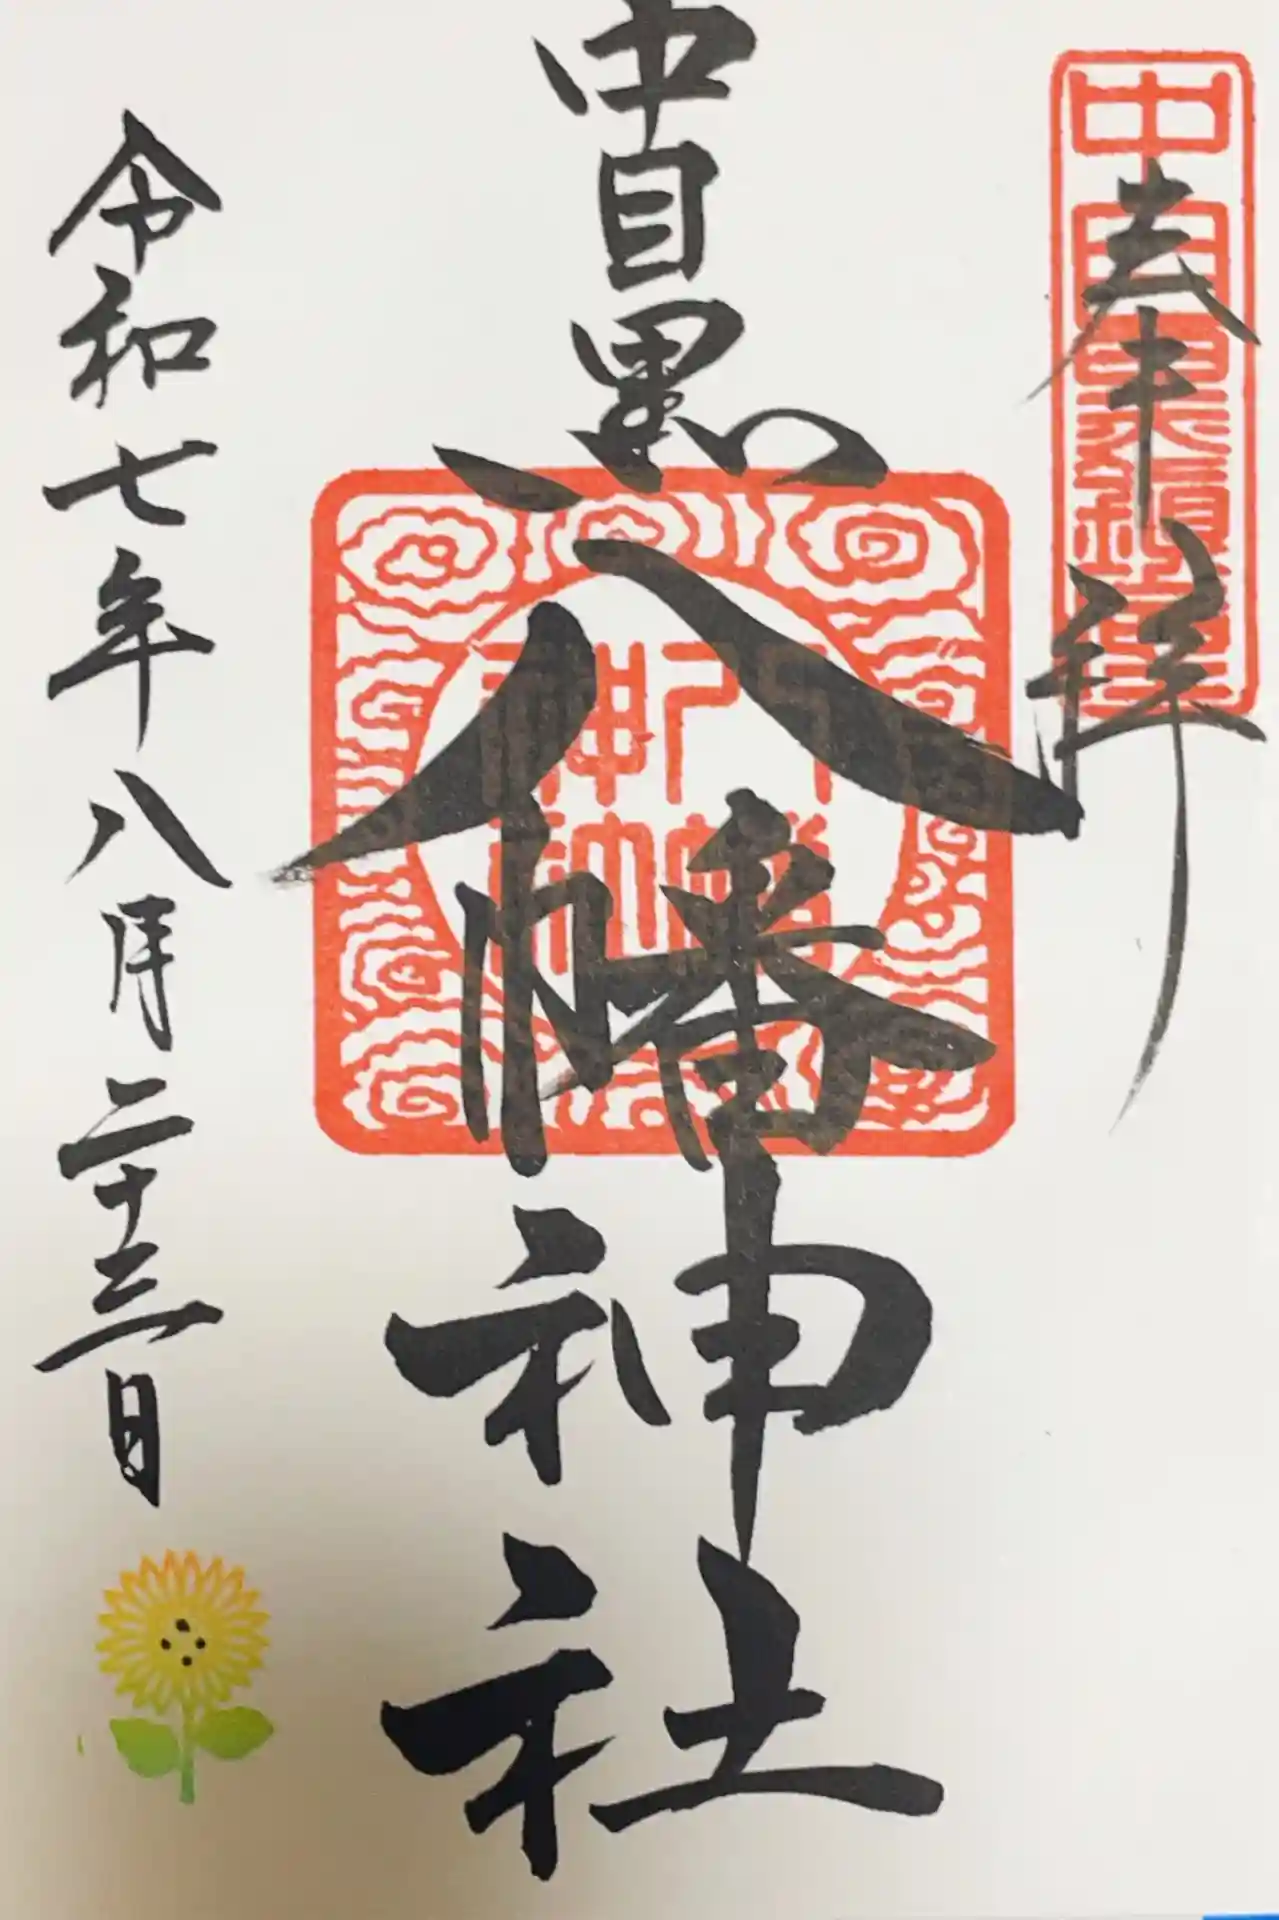 奉拝
中目黒鎮座
中目黒八幡神社
八幡神社
令和七年八月二十三日